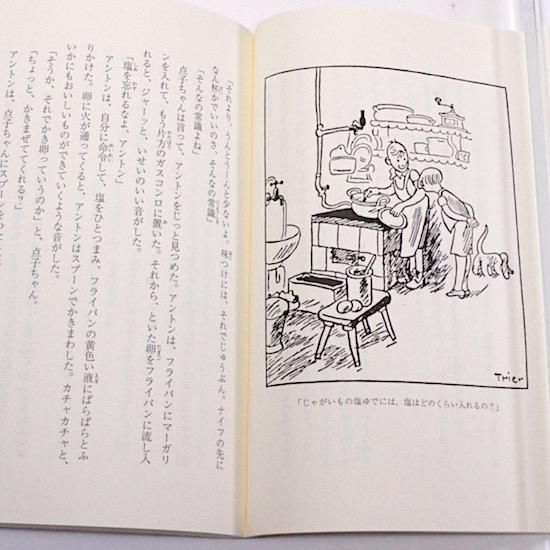 Trier
「じゃがいもの塩ゆでには、塩はどのくらい入れるの？」
「それより、うんとうーんと少ないよ。味つけには、それでじゅうぶん。ナイフの先に
なん杯かでいいのさ、そんなの常識」
「そんなの常識よね」
点子ちゃんは言って、アントンをじっと見つめた。アントンは、フライパンにマーガリ
ンを入れて、もう片方のガスコンロに置いた。それから、といた卵をフライパンに流し入
れると、ジャーッと、いせいのいい音がした。
「塩を忘れるなよ、アントン」
アントンは、自分に命令して、塩をひとつまみ、フライパンの黄色い液にぱらぱらとふ
りかけた。卵に火が通ってくると、アントンはスプーンでかきまわした。カチャカチャと、
いかにもおいしいものができていくような音がした。
「そうか、それでかき卵っていうのか」と、点子ちゃん。
「ちょっと、かきまぜててくれる？」
アントンは、点子ちゃんにスプーンを